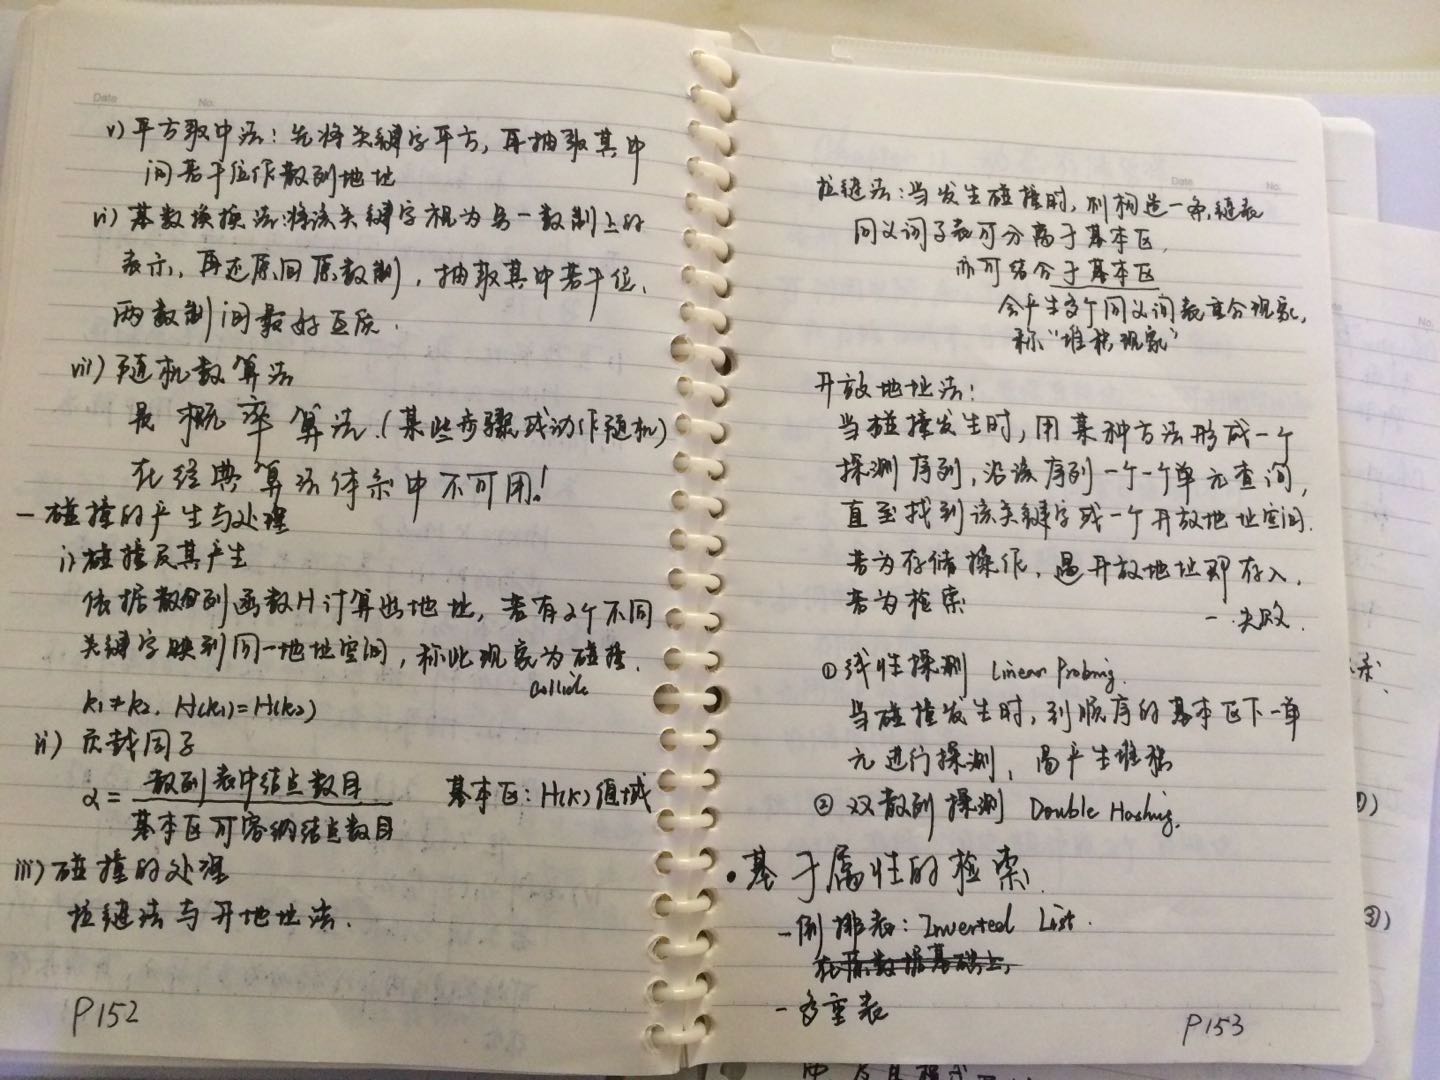 Date No.
v) 平方取中法：先将关键字平方，再抽取其中
间若干位作散列地址
vi) 基数换换法：将该关键字视为另一数制上的
表示，再还原回原数制，抽取其中若干位，
两数制间最好互质．
vii) 随机数算法
是概率算法．(某些步骤或动作随机)
在经典算法体系中不可用！
- 碰撞的产生与处理
i) 碰撞及其产生
依据散列函数H计算出地址，若有2个不同
关键字映到同一地址空间，称此现象为碰撞．
collide
k1≠k2, H(k1)=H(k2)
ii) 负载因子
α = 散列表中结点数目 / 基本区可容纳结点数目 基本区：H(K)值域
iii) 碰撞的处理
拉链法与开地址法．
P152
Date No.
拉链法：当发生碰撞时，则构造一条链表
同义词子表可分离于基本区，
亦可结合于基本区
会产生多个同义词表重合现象，
称“堆积现象”
开放地址法：
当碰撞发生时，用某种方法形成一个
探测序列，沿该序列一个一个单元查询，
直至找到该关键字或一个开放地址空间．
若为存储操作，遇开放地址即存入，
若为检索 - 失败．
① 线性探测 Linear Probing.
当碰撞发生时，到顺序的基本区下一单
元进行探测，易产生堆积
② 双散列探测 Double Hashing.
• 基于属性的检索．
- 倒排表：Inverted List.
在原数据基础上，
- 多重表
P153